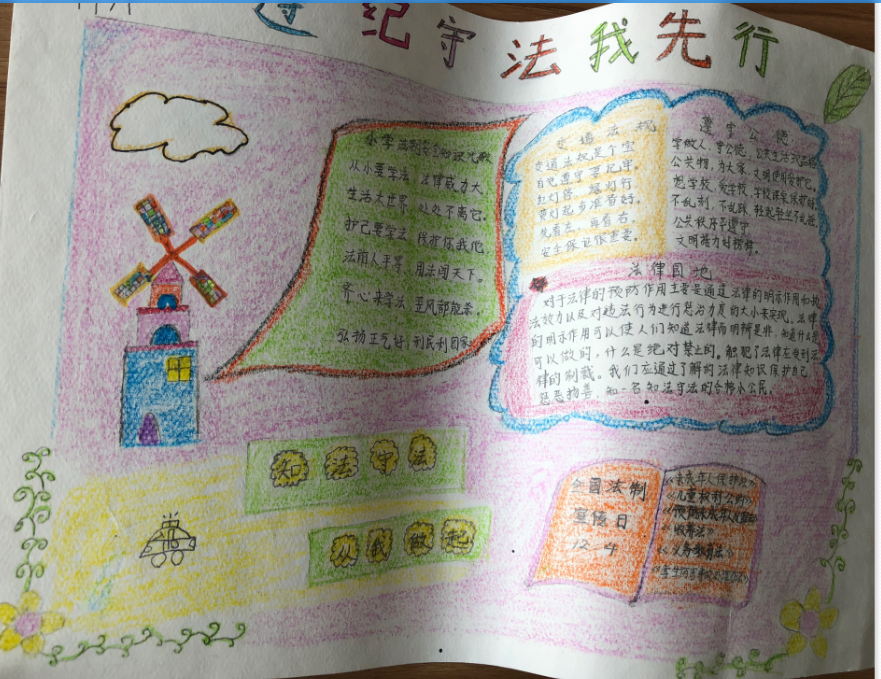 遵纪守法我先行
小学法制安全知识儿歌
从小要学法，法律威力大，
生活大世界，处处不离它。
护己要学法，保护你我他，
法前人平等，用法闯天下。
齐心来学法，歪风都敢
弘扬正气好，利民利国家
交通法规
交通法规是个宝
自觉遵守要记牢。
红灯停，绿灯行
黄灯起步准备好。
先看左，再看右，
安全保证很重要。
遵守公德
学做人，学公德，公共生活
公共物，为大家，文明使用爱护它。
想学校，爱学校，学校课桌保护好
不乱刻，不乱踩，轻起轻坐不乱
公共秩序早遵守
文明
法律园地
对于法律的预防作用主要是通过法律的明示作用和执
法效力以及对违法行为进行惩治力度的大小来实现。法律
的明示作用可以使人们知道法律而明辨是非，知道什么是
可以做的，什么是绝对禁止的。触犯了法律应受到法
律的制裁。我们应通过了解的法律知识保护自己
惩恶扬善，知一名知法守法的合格小公民。
知法守法
从我做起
全国法制
宣传日
12 4
《未成年人保护法》
《儿童权利公约》
《预防未成年人犯罪法》
《收养法》
《义务教育法》
《学生伤害事故处理办法》